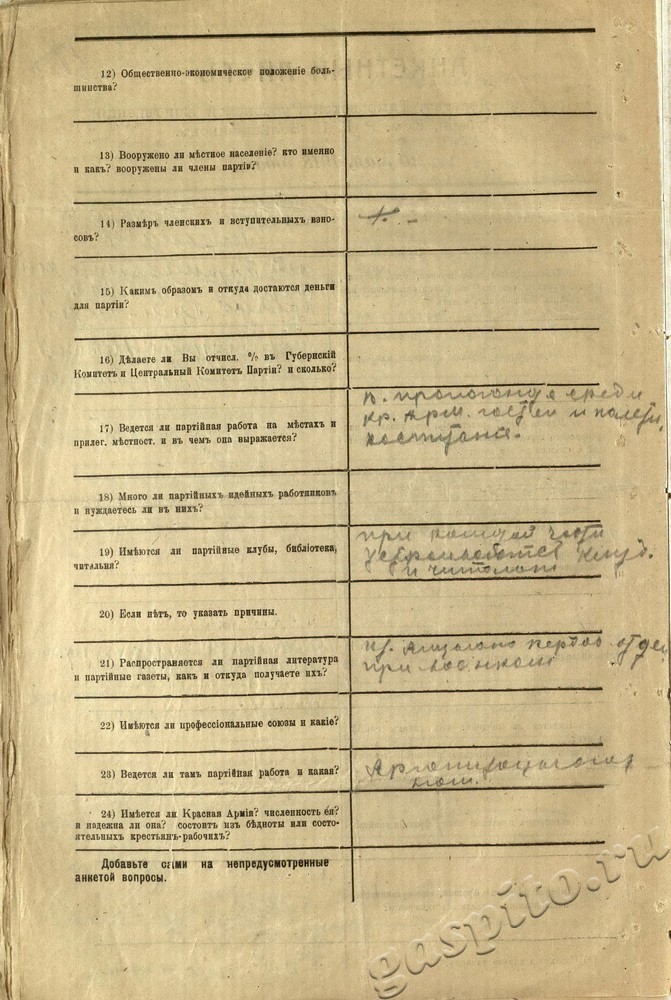 12) Общественно-экономическое положеніе боль-
шинства?
13) Вооружено ли мѣстное населеніе? кто именно
и какъ? вооружены ли члены партіи?
14) Размѣръ членскихъ и вступительныхъ взно-
совъ?
15) Какимъ образомъ и откуда достаются деньги
для партіи?
16) Дѣлаете ли Вы отчисл. % въ Губернскій
Комитетъ и Центральный Комитетъ Партіи? и сколько?
17) Ведется ли партійная работа на мѣстахъ и
прилег. мѣстност. и въ чемъ она выражается?
среди
кр. арм. и
18) Много ли партійныхъ идейныхъ работниковъ
и нуждаетесь ли въ нихъ?
19) Имѣются ли партійные клубы, библіотека,
читальня?
при каждой части
клуб.
и
20) Если нѣтъ, то указать причины.
21) Распространяется ли партійная литература
и партійные газеты, какъ и откуда получаете ихъ?
при
22) Имѣются ли профессіональные союзы и какіе?
23) Ведется ли тамъ партійная работа и какая?
24) Имѣется ли Красная Армія? численность ея?
и надежна ли она? состоитъ изъ бѣдноты или состо-
ятельныхъ крестьянъ-рабочихъ?
Добавьте сами на непредусмотренные
анкетой вопросы.
gaspito.ru